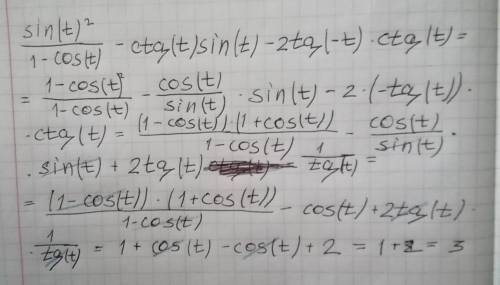 sin(t)²/1-cos(t) - ctg(t)sin(t) - 2tg(-t)·ctg(t) =
= 1-cos(t)²/1-cos(t) - cos(t)/sin(t) · sin(t) - 2·(-tg(t))·
·ctg(t) = (1-cos(t))·(1+cos(t))/1-cos(t) - cos(t)/sin(t) ·
· sin(t) + 2tg(t) 1/tg(t) =
= (1-cos(t))·(1+cos(t))/1-cos(t) - cos(t) + 2tg(t) ·
· 1/tg(t) = 1 + cos(t) - cos(t) + 2 = 1+2 = 3